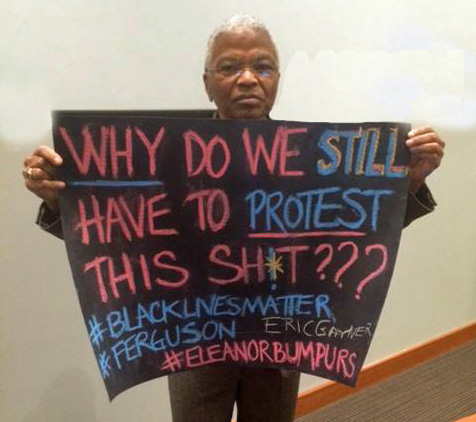 WHY DO WE STILL
HAVE TO PROTEST
THIS SH*T???
#BLACKLIVESMATTER
#FERGUSON ERICGARNER
#ELEANORBUMPURS